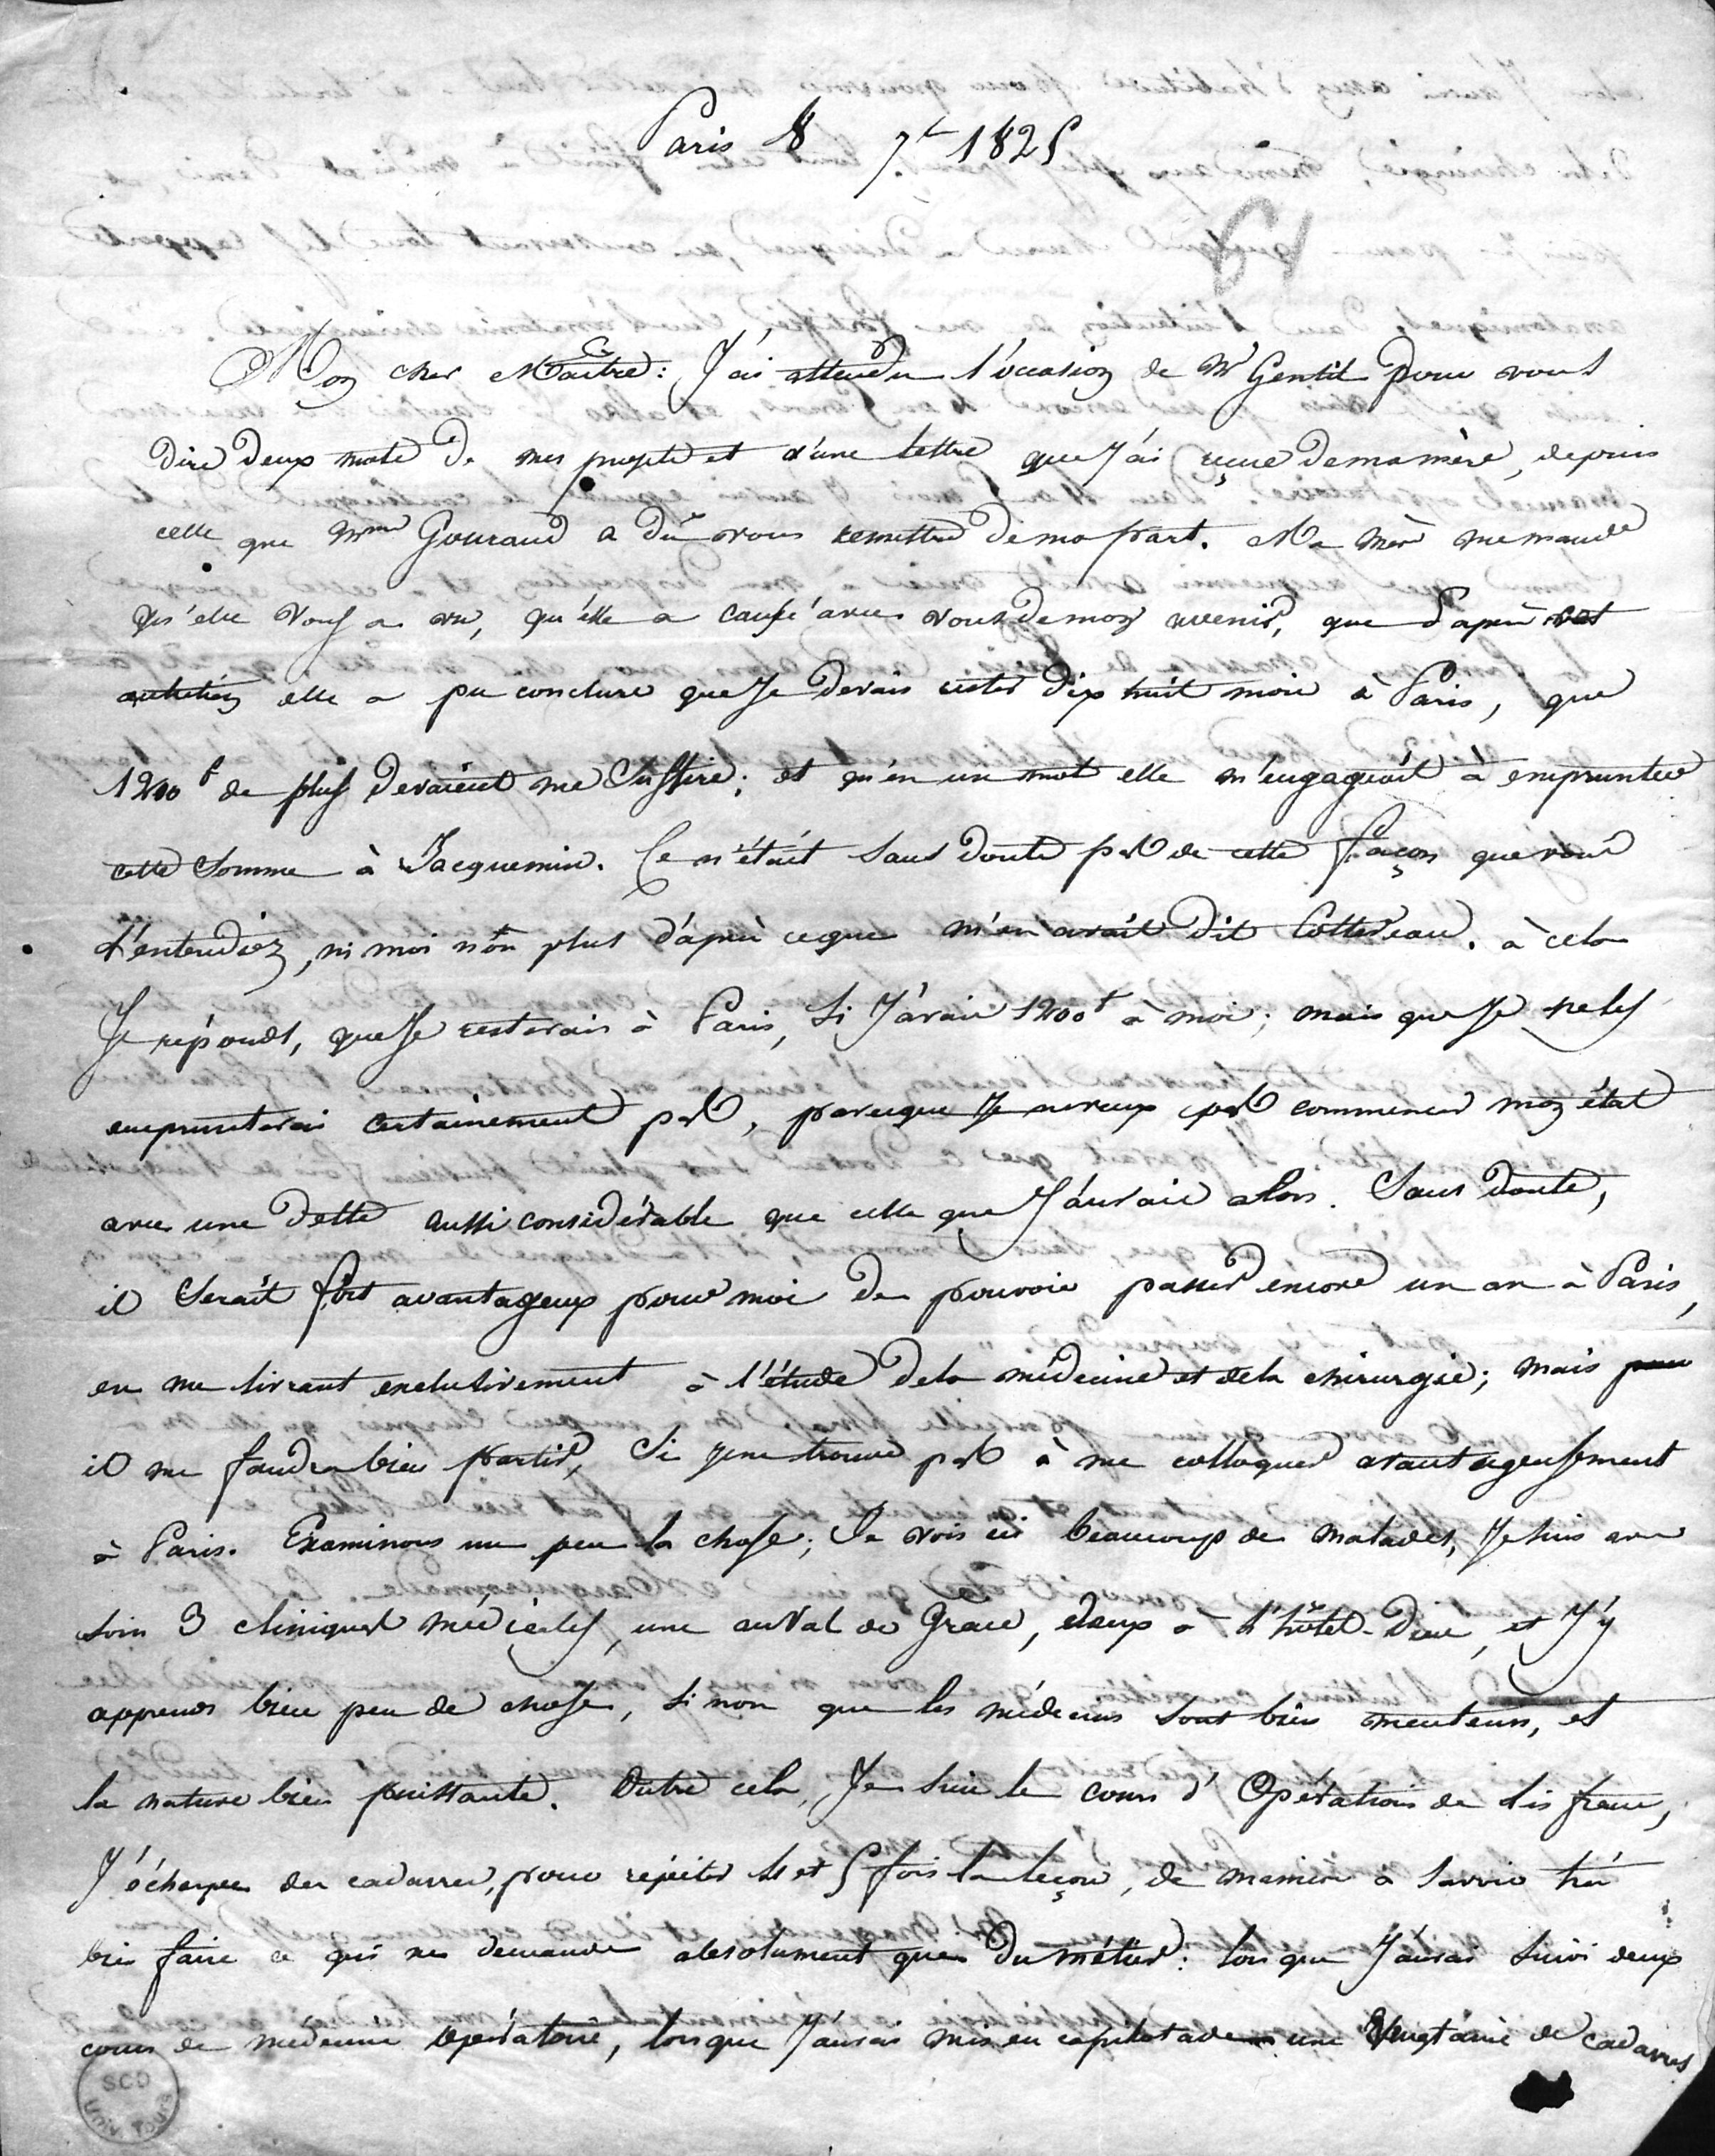 Paris 8 7bre 1825
61
Mon cher Maître: J'ai attendu l'occasion de Mr Gentil pour vous
dire deux mots de mes projets et d'une lettre que J'ai reçue de ma mère, depuis
celle que Mme Gouraud a dû vous remettre de ma part. Ma mère me mande
qu'elle vous a vu, qu'elle a causé avec vous de mon avenir, que d'après cet
entretien elle a pu conclure que Je devais rester dix huit mois à Paris, que
1200 f de plus devaient me suffire; et qu'en un mot elle m'engageait à emprunter
cette somme à Jacquemin. Ce n'était sans doute pas de cette façon que vous
l'entendiez, ni moi non plus d'après ce que m'en avait dit Cottereau. à cela
Je réponds, que Je resterais à Paris, si J'avais 1200 f à moi; mais que Je ne les
emprunterai certainement pas, parceque Je ne veux pas commencer mon état
avec une dette aussi considérable que celle que J'aurais alors. Sans doute,
il serait fort avantageux pour moi de pouvoir passer encore un an à Paris,
en me livrant exclusivement à l'étude de la médecine et de la chirurgie; mais
il me faudra bien partir, si Je ne trouve pas à me colloquer avantageusement
à Paris. Examinons un peu la chose; Je vois ici beaucoup de malades, Je suis avec
soin 3 cliniques médicales, une au Val de Grace, deux à l'hôtel-Dieu, et J'y
apprends bien peu de chose, si non que les médecins sont bien menteurs, et
la nature bien puissante. Outre cela, Je suis le cours d'Opérations de Lisfranc,
J'écharpe des cadavres, pour répéter 4 et 5 fois la leçon, de manière à savoir très
bien faire ce qui ne demande absolument que du métier: lorsque J'aurai suivi deux
cours de médecine opératoire, lorsque J'aurai mis en capilotade une vingtaine de cadavres
SCD
Univ. Tours